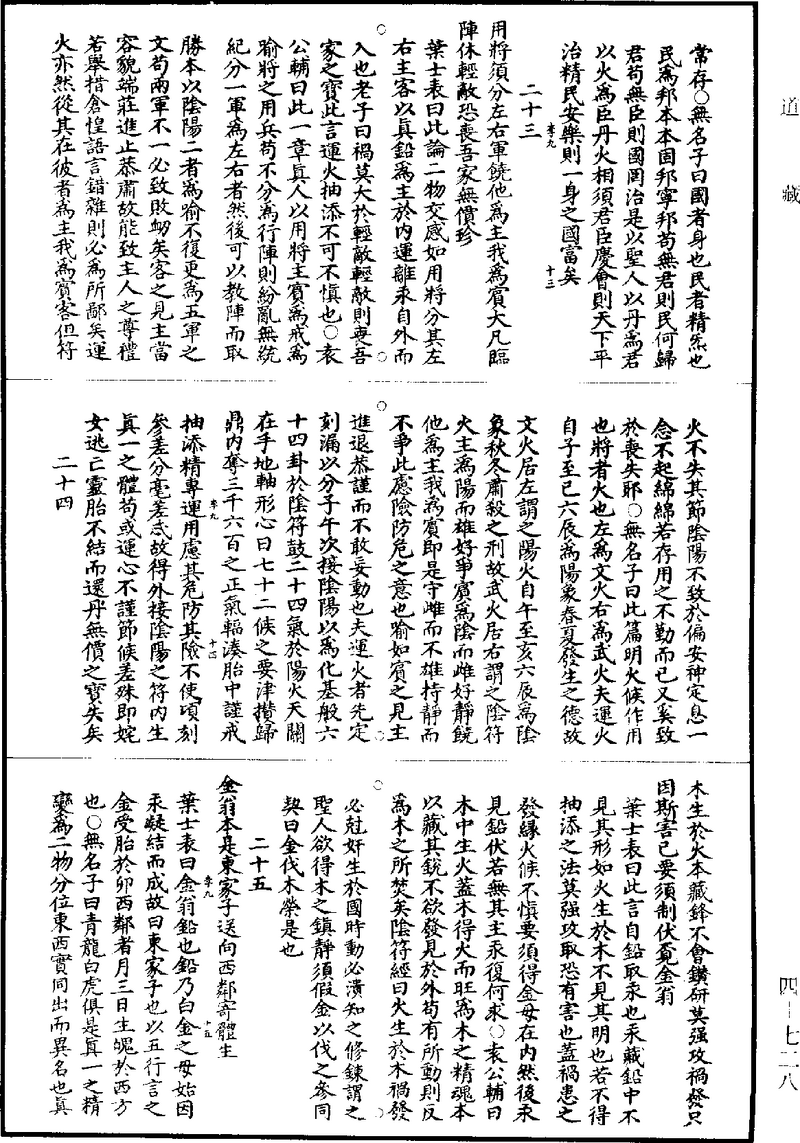 道藏
常存○無名子曰國者身也民者精炁也
民爲邦本本固邦寧邦苟無君則民何歸
君苟無臣則國罔治是以聖人以丹爲君
以火爲臣丹火相須君臣慶會則天下平
治精民安樂則一身之國富矣
李九
十三
二十三
用將須分左右軍饒他爲主我爲賓大凡臨
陣休輕敵恐喪吾家無價珍
葉士表曰此論二物交感如用將分其左
右主客以真鉛爲主於内運離汞自外而
入也老子曰禍莫大於輕敵輕敵則喪吾
家之寶此言運火抽添不可不慎也○袁
公輔曰此一章真人以用將主賓爲戒爲
喻將之用兵苟不分爲行陣則紛亂無統
紀分一軍爲左右者然後可以教陣而取
勝本以陰陽二者爲喻不復更爲五軍之
文苟兩軍不一必致敗衂矣客之見主當
容貌端莊進止恭肅故能致主人之尊禮
若舉措倉惶語言錯雜則必爲所鄙矣運
火亦然從其在彼者爲主我爲賓客但符
火不失其節陰陽不致於偏安神定息一
念不起綿綿若存用之不勤而已又奚致
於喪失耶○無名子曰此篇明火候作用
也將者火也左爲文火右爲武火夫運火
自子至巳六辰爲陽象春夏發生之德故
文火居左謂之陽火自午至亥六辰爲陰
象秋冬肅殺之刑故武火居右謂之陰符
火主爲陽而雄好爭賓爲陰而雌好靜饒
他爲主我爲賓即是守雌而不雄持靜而
不爭此慮險防危之意也喻如賓之見主
進退恭謹而不敢妄動也夫運火者先定
刻漏以分子午次接陰陽以爲化基般六
十四卦於陰符鼓二十四氣於陽火天關
在手地軸形心曰七十二候之要津攢歸
鼎内奪三千六百之正氣輻湊胎中謹戒
李九
十四
抽添精專運用慮其危防其險不使頃刻
參差分毫差忒故得外接陰陽之符内生
真一之體苟或運心不謹節候差殊即姹
女逃亡靈胎不結而還丹無價之寶失矣
二十四
木生於火本藏鋒不會鑽研莫强攻禍發只
因斯害已要須制伏覓金翁
葉士表曰此言自鉛取汞也汞藏鉛中不
見其形如火生於木不見其明也若不得
抽添之法莫強攻取恐有害也蓋禍患之
發緣火候不慎要須得金母在内然後汞
見鉛伏若無其主汞復何求○袁公輔曰
木中生火蓋木得火而旺爲木之精魂本
以藏其銳不欲發見於外苟有所動則反
爲木之所焚矣陰符經曰火生於木禍發
必尅奸生於國時動必潰知之修鍊謂之
聖人欲得木之鎮靜須假金以伐之參同
契曰金伐木榮是也
二十五
金翁本是東家子送向西鄰寄體生
李九
十五
葉士表曰金翁鉛也鉛乃白金之母始因
汞凝結而成故曰東家子也以五行言之
金受胎於卯西鄰者月三日生魄於西方
也○無名子曰青龍白虎俱是真一之精
變爲二物分位東西實同出而異名也真
四－七二八